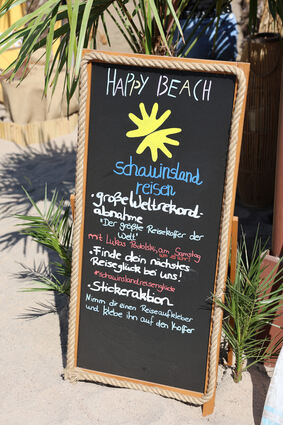 HAPPY BEACH
schauinsland
reisen
• große Weltrekord-
abnahme
"Der größte Reisekoffer der
Welt"
mit Lukas Podolski, am Samstag
• Finde dein nächstes
Reiseglück bei uns!
#schauinslandreisenglück
• Stickeraktion
Nimm dir einen Reiseaufkleber
und klebe ihn auf den Koffer